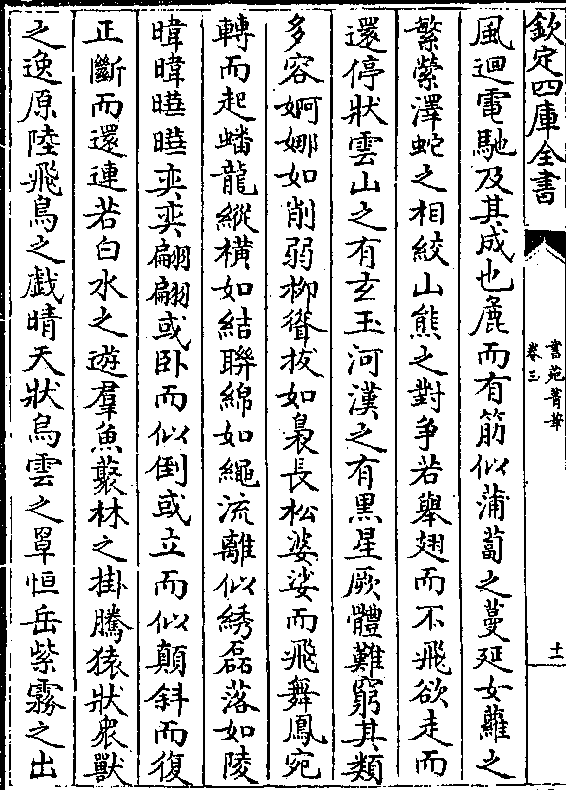 欽定四庫全書
書苑菁華
卷三
十一
風迴電馳及其成也麄而有筋似蒲萄之蔓延女蘿之
繁縈澤蛇之相絞山熊之對爭若舉翅而不飛欲走而
還停狀雲山之有玄玉河漢之有黑星厥體難窮其類
多容婀娜如削弱柳聳拔如裊長松婆娑而飛舞鳳宛
轉而起蟠龍縱橫如結聯綿如繩流離似綉磊落如陵
暐暐曄曄奕奕翩翩或卧而似倒或立而似顛斜而復
正斷而還連若白水之遊羣魚藂林之掛騰猿狀衆獸
之逸原陸飛鳥之戲晴天狀烏雲之罩恒岳紫霧之出